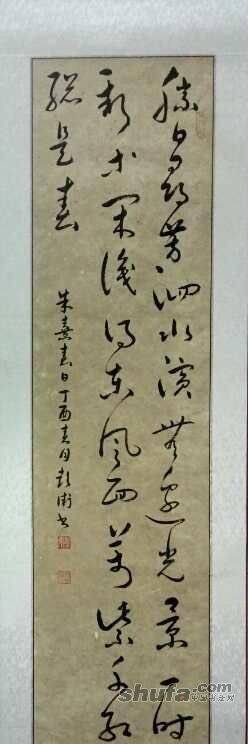 勝日尋芳泗水濱無邊光景一时
新等閑識得東風面萬紫千紅
總是春
朱熹春日丁酉春月
shufa.com